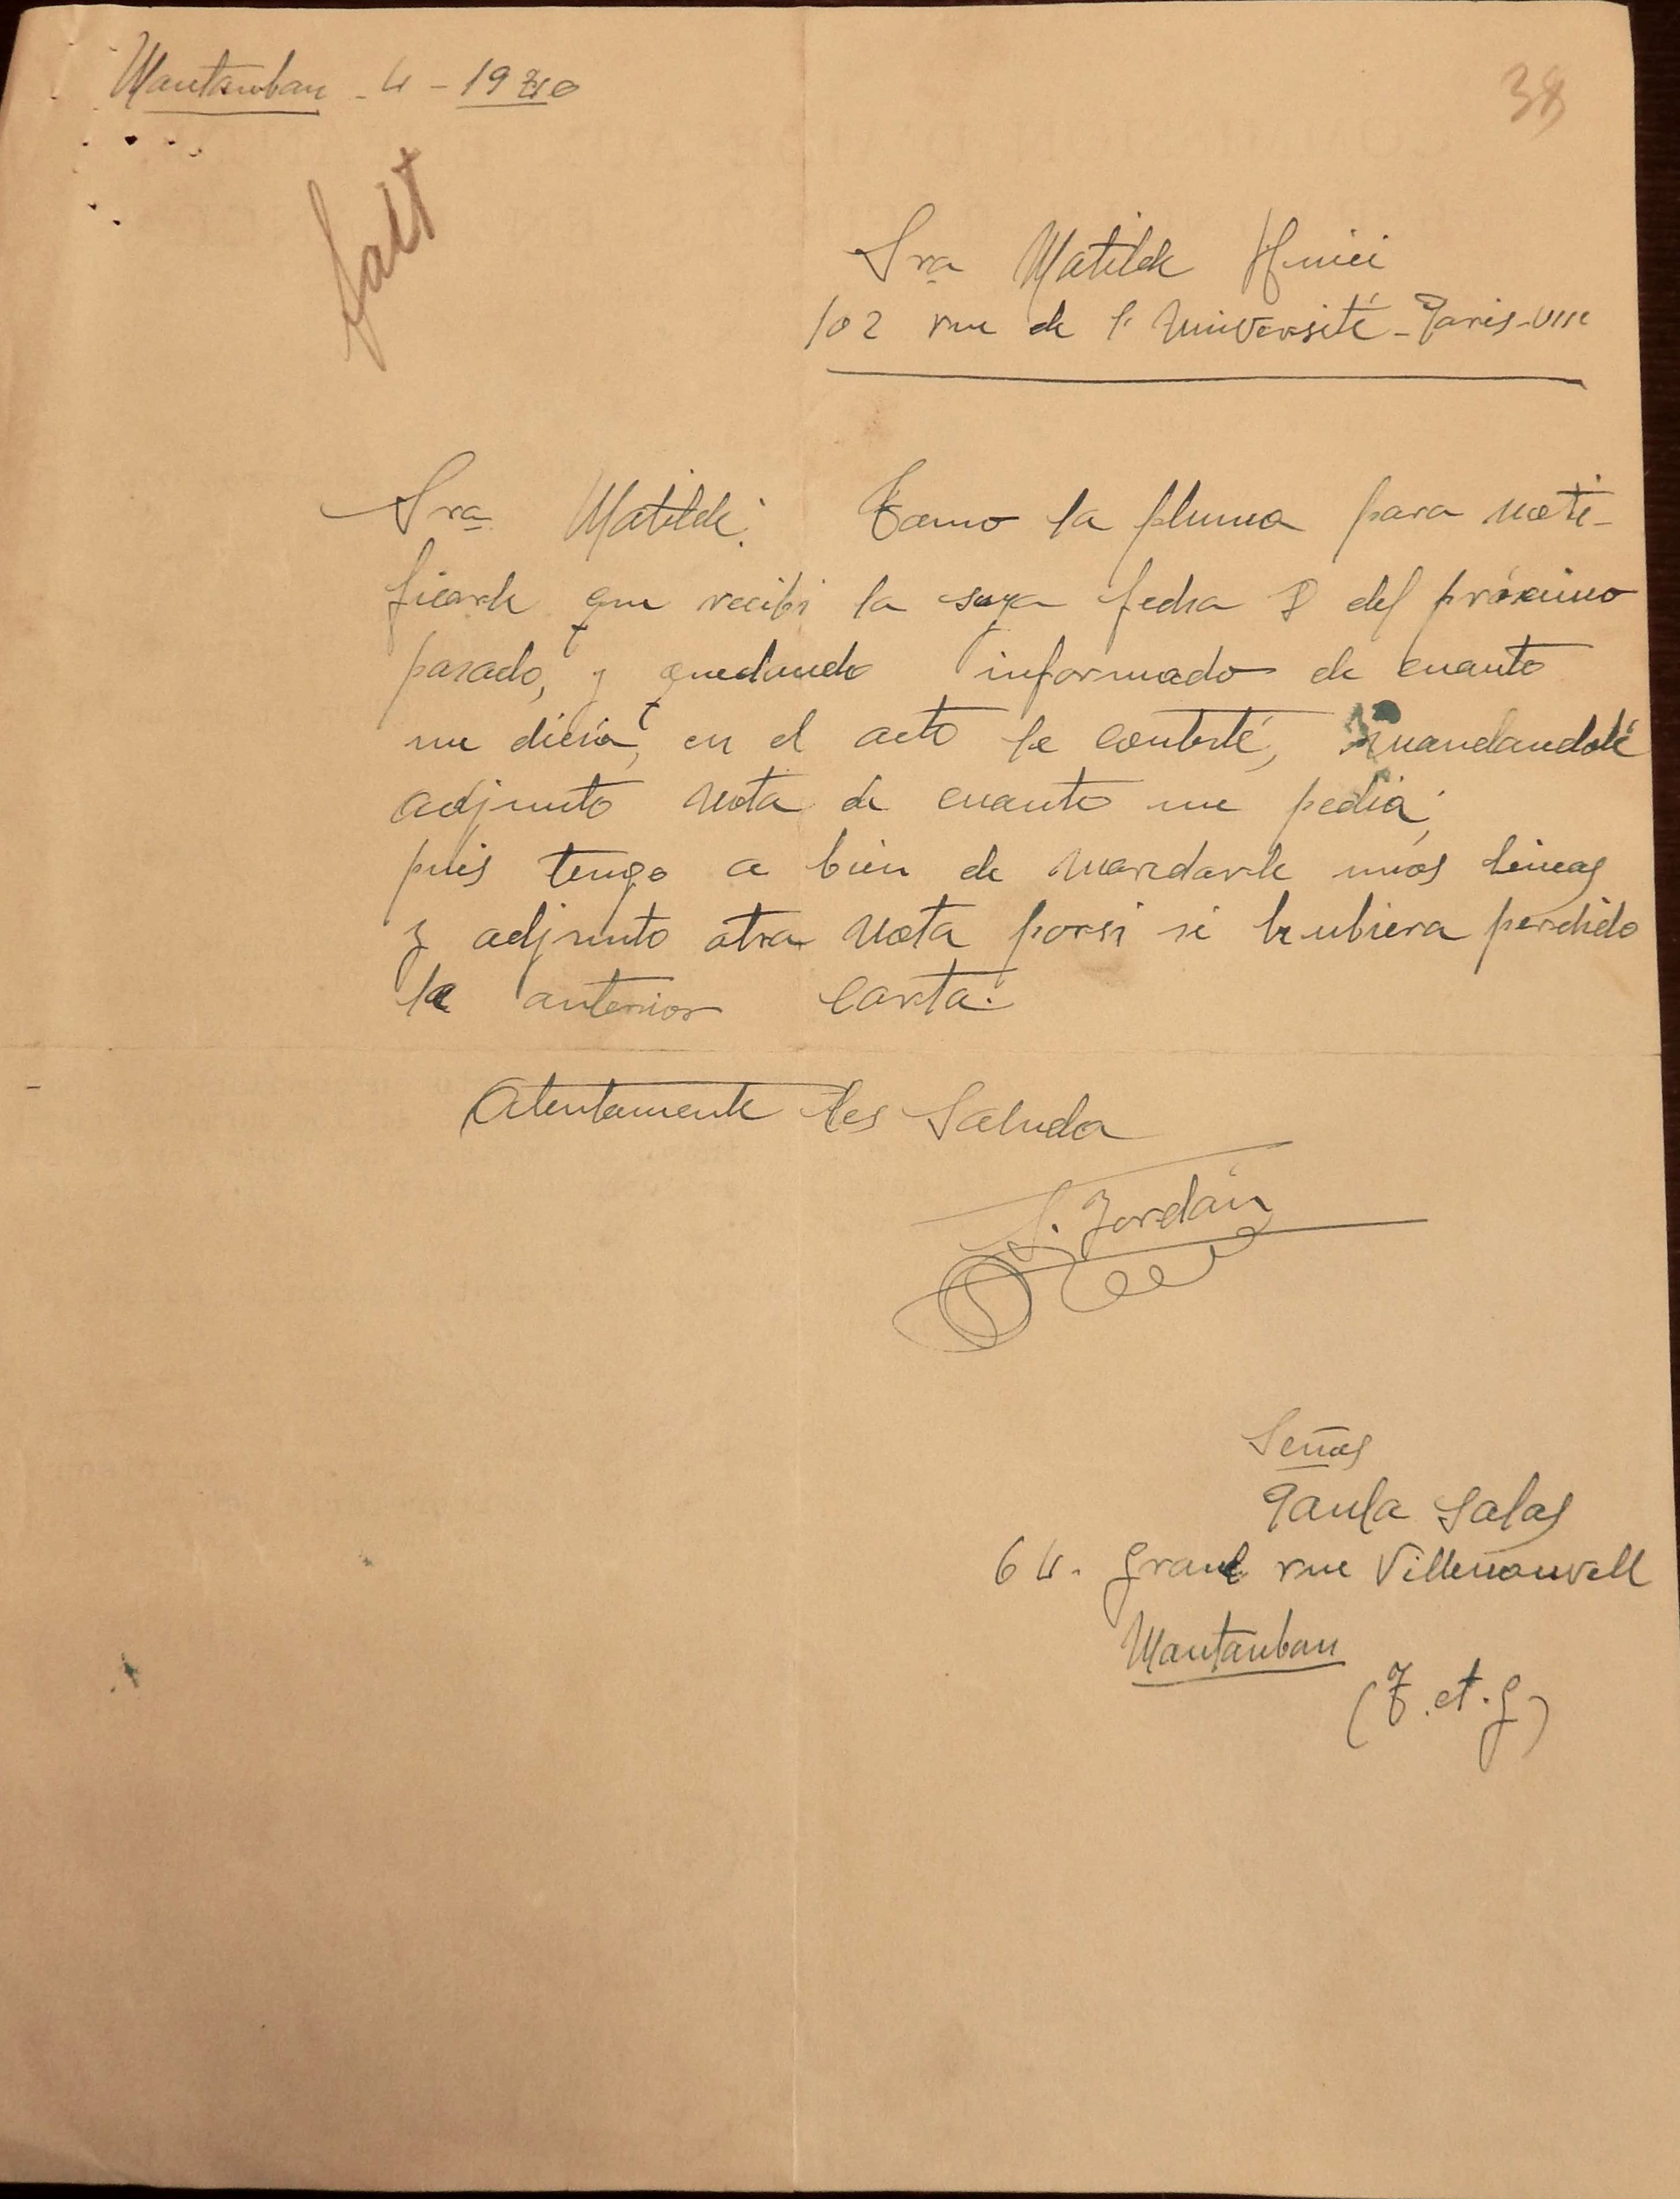 Mantauban - 4 - 1940
38
Sra Matilde Huici
102 rue de l'Université - Paris - VIIe
Sra Matilde: Tomo la pluma para noti-
ficarle que recibi la suya fecha 8 del próximo
pasado, y quedando informado de cuanto
me dicia, en el acto le contesté, mandandole
adjunto nota de cuanto me pedia;
pues tengo a bien de mandarle unas lineas
y adjunto otra nota porsi se hubiera perdido
la anterior carta.
Atentamente les Saluda
S. Jordán
Señas
Paula Salas
64. Grand rue Villenouvell
Mantauban
(T. et. G)